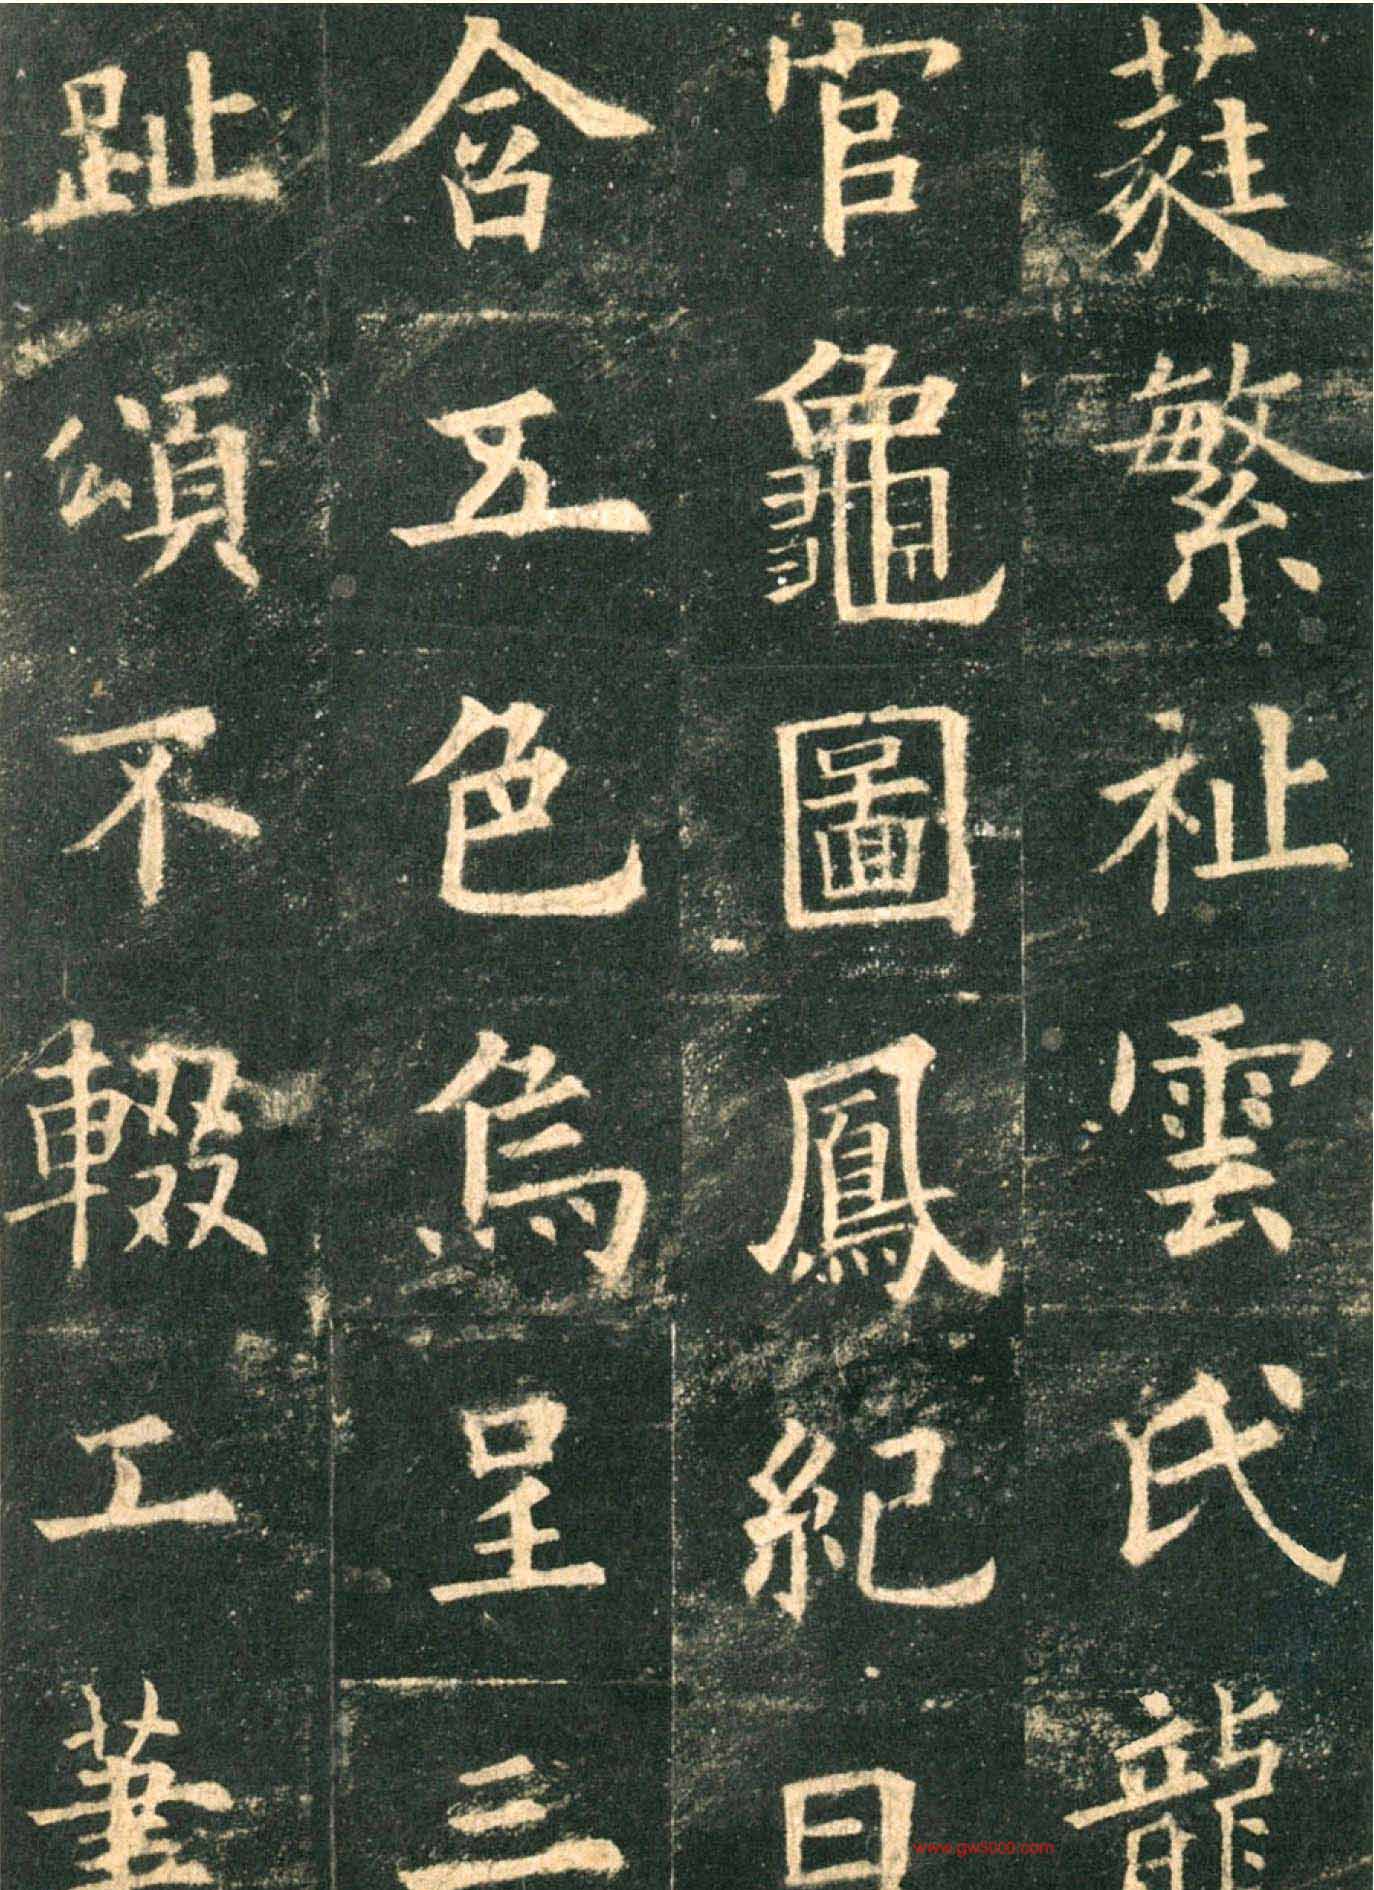 蕤繁祉雲氏龍
官龜圖鳳紀日
含五色烏呈三
趾頌不輟工筆
www.gw5000.com